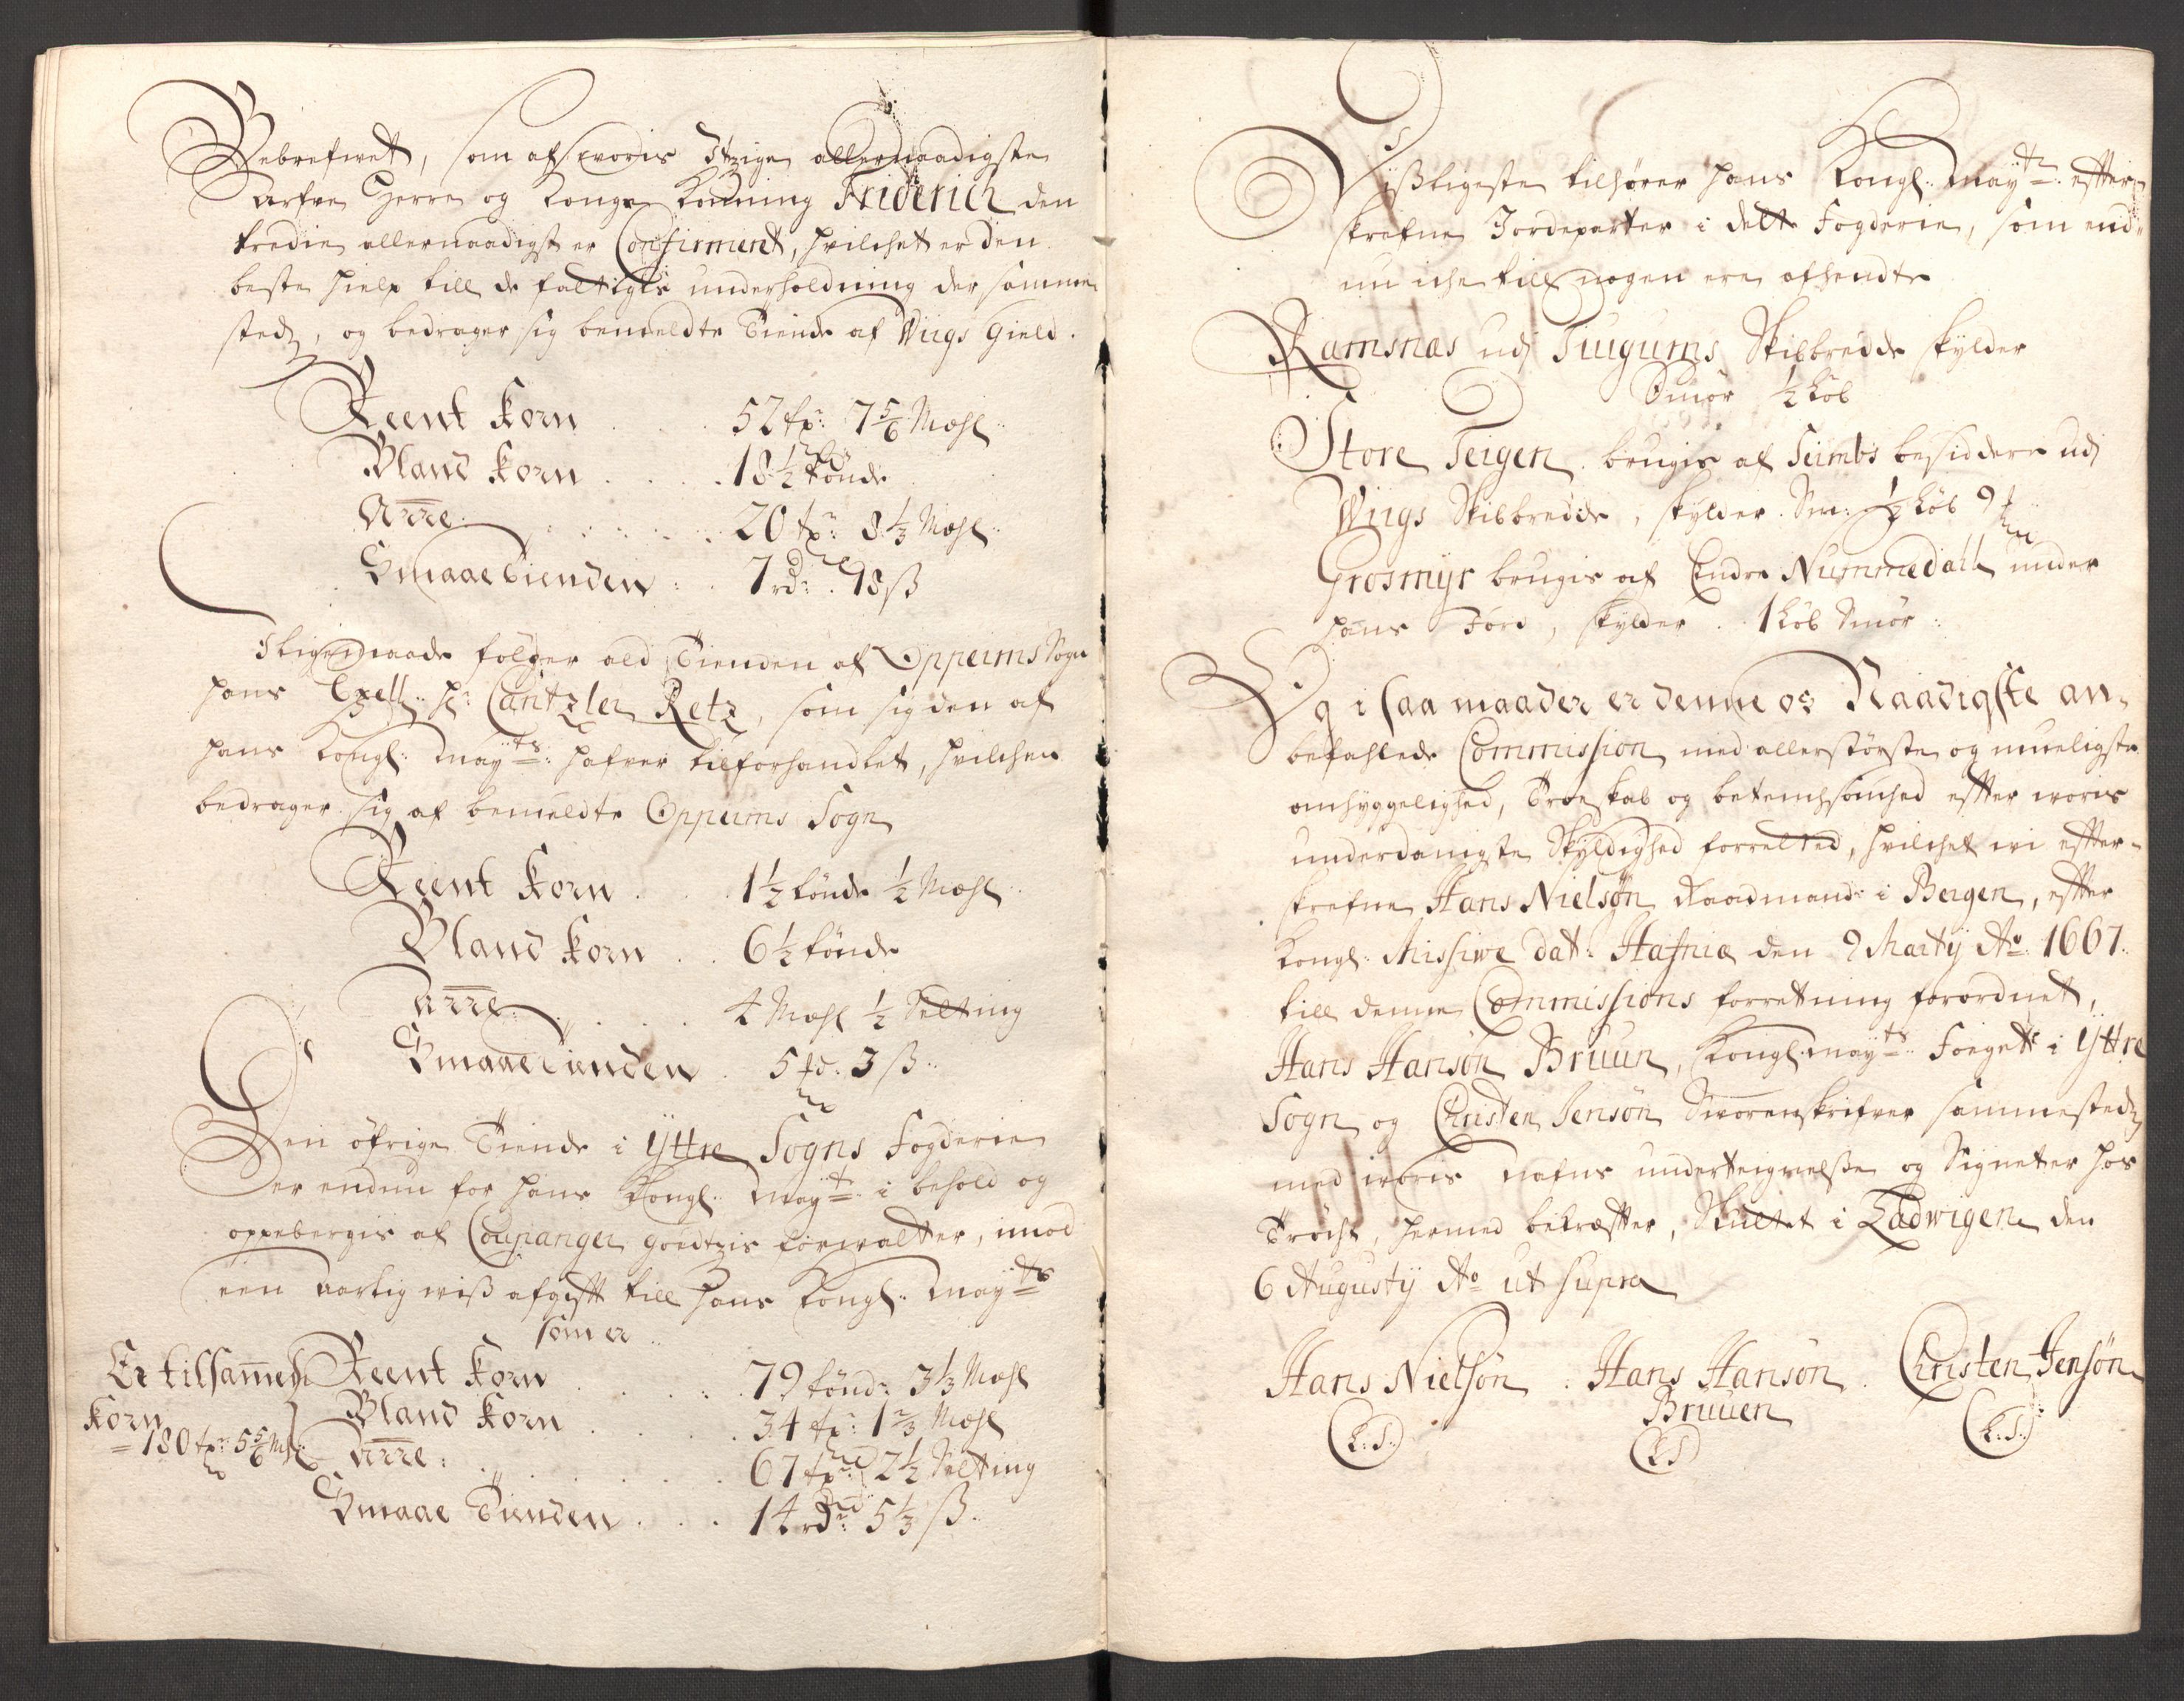 Bebrefwet, som af woris Itzige allernaadigste
Arfve Herre og Konge Konning Friderich den
tredie allernaadigst er Confirmert, hvilchet er den
beste hielp till de fattiges underholdning der samme
sted, og bedrager sig bemeldte Tiende af Wiigs Gield.
Reent Korn . . . 52 tr: 7 5/6 Mæhl
Bland Korn . . . 18 1/2 tønde
Arre . . . 20 tr: 3 1/3 Mæhl
Smaae Tienden . . 7 rd: 18 ß
I ligemaade følger ald Tienden af Oppeims Sogn
hans Exell: Hr: Cantzler Retz, som sig den af
hans Kongl: Mayts: hafver tilforhandlet, hvilchen
bedrager sig af bemeldte Oppeims Sogn
Reent Korn . . 1 1/2 tønde 1/2 Mæhl
Bland Korn . . 6 1/2 tønde
Arre . . . 4 Mæhl 1/2 Setting
Smaae Tienden . 5 rd: 3 ß
Den øfrige Tiende i Yttre Sogns Fogderie
er endnu for hans Kongl: Mayts: i behold og
oppebergis af Coupanger goedtzis forwalter, imod
een aarlig wiß afgifft till hans Kongl: Mayts
som er
Er tilsammen Reent Korn . . . 79 tønd: 3 1/3 Mæhl
Korn Bland Korn . . . 34 tr: 1 2/3 Mæhl
= 180 tr: 5 5/6 Mhl Arre: . . . 67 tr: 2 1/2 Setting
Smaae Tienden . . . 14 rd: 5 1/3 ß.
Wißligeste tilhører hans Kongl: Mayts: effter-
skrefne Jordeparter i dette Fogderie, som end-
nu iche till nogen ere afhendte
Ramsnæs udj Tiugums Skibredde skylder
Smør 1/2 Løb
Store Teigen brugis af Seimbs besiddere udj
Wiigs Skibredde, skylder Smr: 1/2 Løb 9
Grosmyr brugis af Endre Nummedall under
hans Jord, skylder . 1 Løb Smør:
Og i saa maader er denne os Naadigste an-
befahlede Commission med allerstørste og mueligste
omhyggelighed, Troeskab og betenchsomhed effter woris
underdanigste Skyldighed forretted, hvilchet wi effter-
skrefne Hans Nielsøn Raadmand i Bergen, effter
Kongl: Missive dat: Hafniæ den 9 Martij Ao: 1667.
till denne Commissions forretning forordnet,
Hans Hansøn Bruun, Kongl: Mayts: Foegett i Yttre
Sogn og Christen Jensøn Sworenskrifver sammested
med woris nafns underteignelße og Signeter hos
Tröcht, hermed bekræffter, Sluttet i Ladwigen den
6 Augustij Ao ut supra
Hans Nielsøn . Hans Hansøn . Christen Jensøn
Bruuen
(L.S.) (LS) (L.S.)